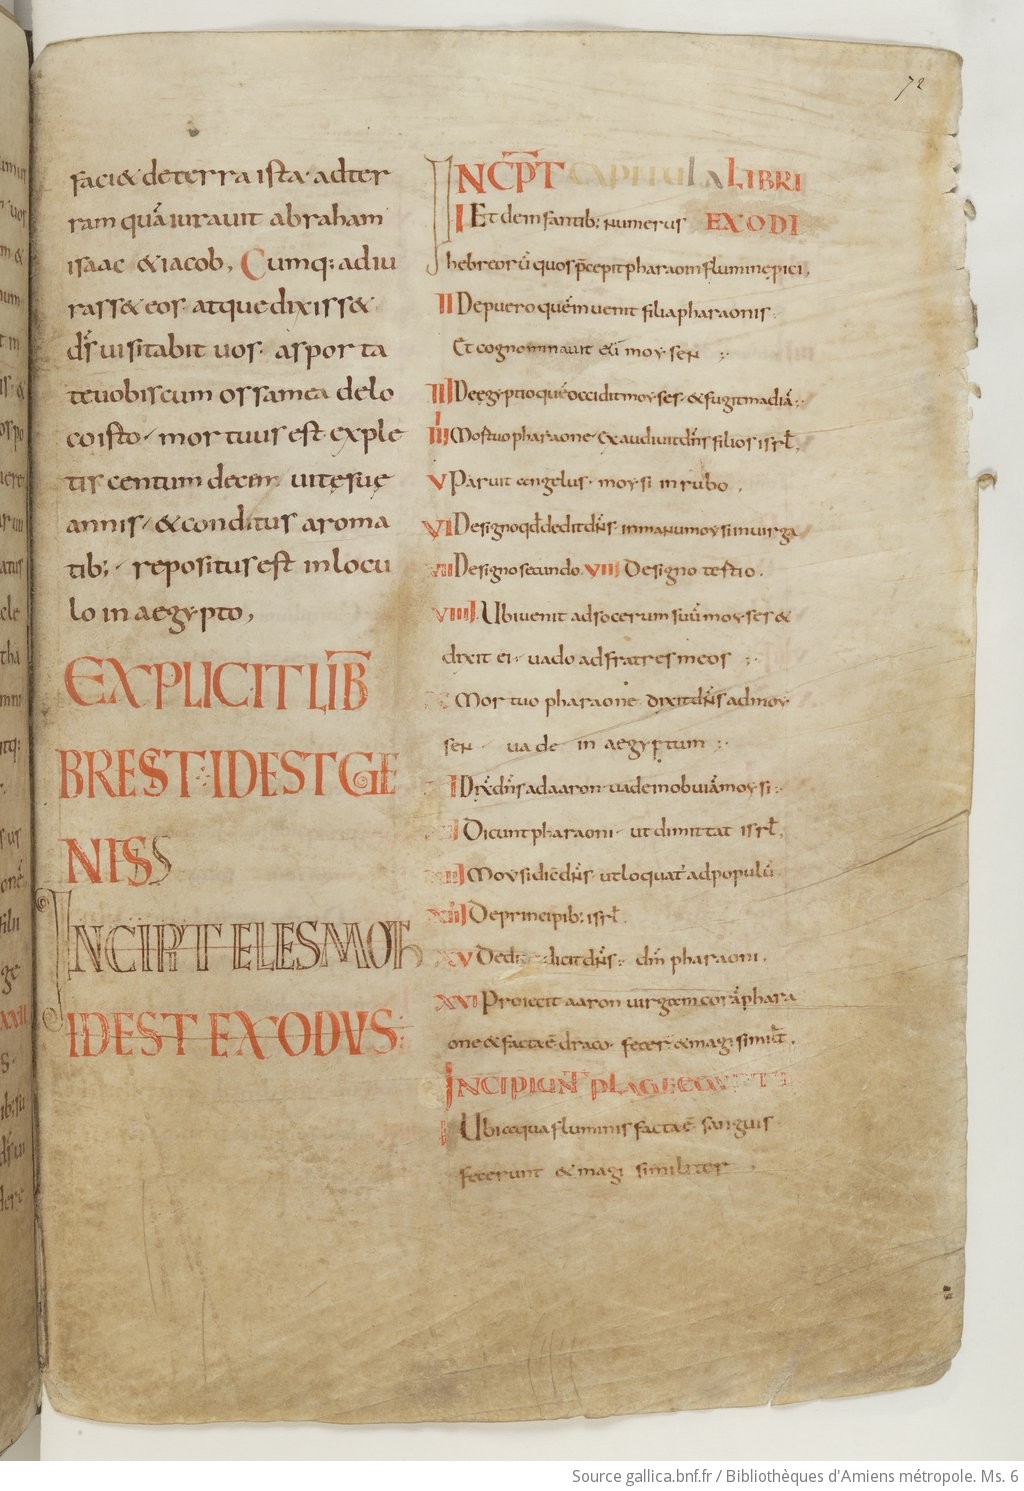 72
faci& de terra ista· ad ter
ram quā iurauit abraham
isaac &iacob, Cumq; adiu
rass& eos· atque dixiss&
d̄s uisitabit uos· asporta
te uobiscum ossa mea de lo
co isto· mortuus est· exple
tis centum decem uitę suę
annis· &conditus aroma
tib;· repositus est in locu
lo in aegypto,
EXPLICIT LIB
BRESIT·IDEST GE
NISS
INCIPT ELESMOTH
IDEST EXODVS:
INCP̄T CAPITULA LIBRI
I Et de infantib; numerus EXODI
hebreorū quos p̄cepit pharao in flumine ꝓici,
II De puero quē inuenit filia pharaonis·
Et cognominauit eū moysen :·
III De egyptio quē occidit moyses· & fugit madiā:·
IIII Mostuo pharaone· exaudiuit dn̄s filios isrł,
V Paruit angelus· moysi in rubo,
VI De signo qđ dedit dn̄s· in manu moysi in uirga
VII De signo secundo· VIII De signo tertio.
VIIII Ubi uenit ad socerum suū moyses &
dixit ei· uado ad fratres meos :·
Mortuo pharaone dixit dn̄s ad moy
sen· uade in aegyptum :·
I Dix̄ dn̄s ad aaron· uade in obuiā moysi :·
I Dicunt pharaoni· ut dimittat isrł,
III Moysi dic̄ dn̄s· ut loquat' ad populū
XIIII De principib; isrł.
XV dicit dn̄s:· dm̄ pharaoni,
XVI Proiecit aaron uirgam corā phara
one & facta ē draco· fecer̄ & magi simił.
INCIPIUNT PLAGE
I Ubi aqua fluminis facta ē sanguis
fecerunt & magi similiter,
Source gallica.bnf.fr / Bibliothèques d'Amiens métropole. Ms. 6